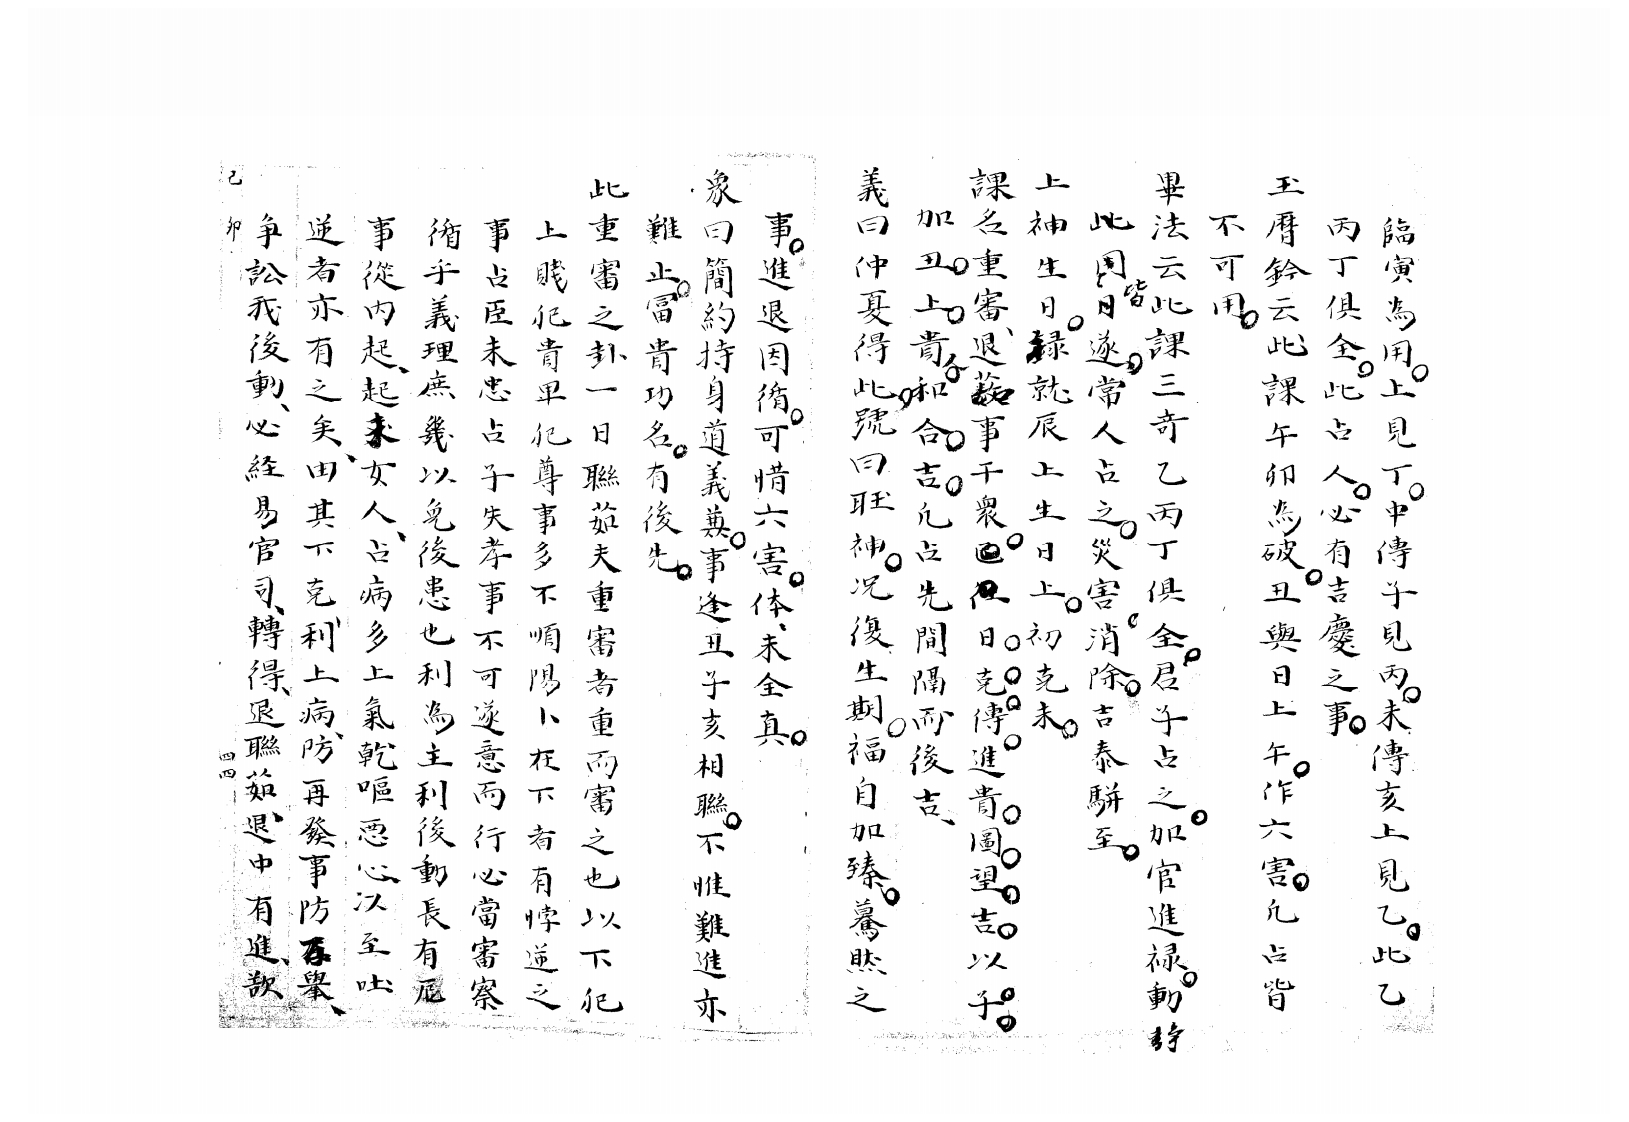 臨寅為用上見丁中傳子見丙未傳亥上見乙此乙
丙丁俱全此占人必有吉慶之事
玉曆鈐云此課午卯為破丑與日上午作六害凢占皆
不可用
畢法云此課三奇乙丙丁俱全君子占之加官進祿動静
此周皆日遂常人占之災害消除吉泰駢至
上神生日録就辰上生日上初克未
課名重審退茹事干衆日克傳進貴圖望吉以子
加丑上貴人和合吉凢占先間隔而後吉
義曰仲夏得此號曰旺神况復生期福自加臻驀然之
事進退因循可惜六害体未全真
象曰簡約持身道義兼事逢丑子亥相聯不惟難進亦
難止冨貴功名有後先
此重審之卦一日聯茹夫重審者重而審之也以下犯
上賤犯貴卑犯尊事多不順陽卜在下者有悖逆之
事占臣未忠占子失孝事不可遂意而行必當審察
循乎義理庶幾以免後患也利為主利後動長有厄
事從内起起來女人占病多上氣乾嘔悪心以至吐
逆者亦有之矣由其下克利上病防再發事防再舉
争訟我後動必経易官司轉得退聯茹退中有進歇
己卯
四四